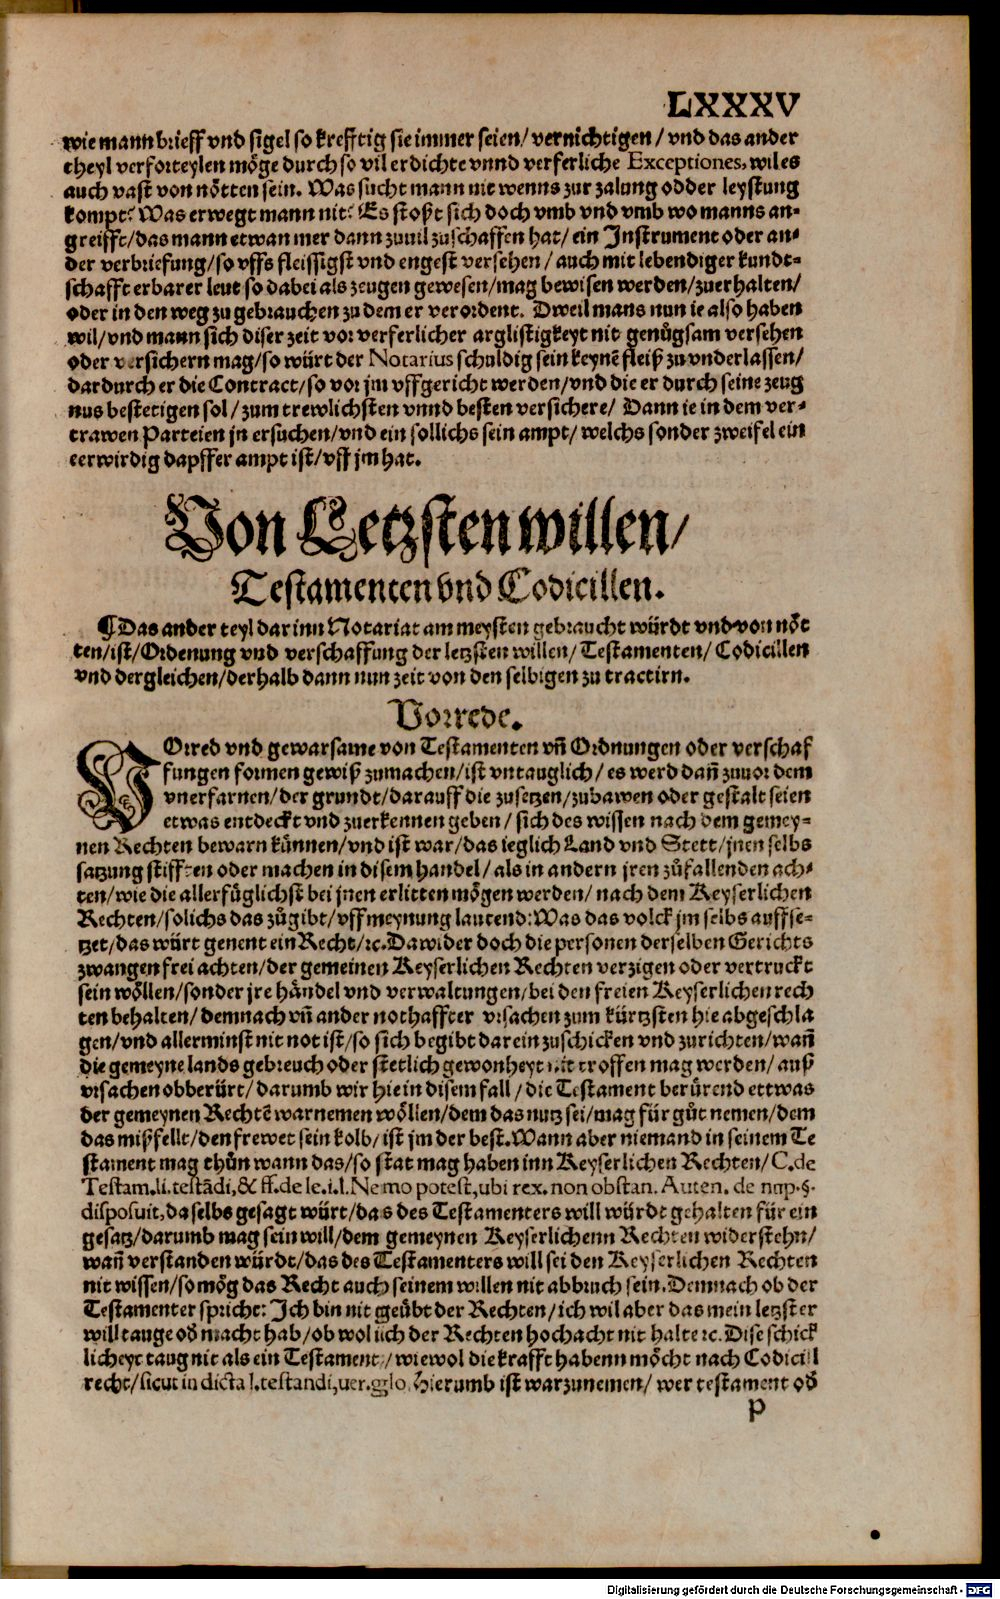 LXXXV
wie mann brieff vnd sigel so krefftig sie immer seien/ vernichtigen/ vnd das ander
theyl verforteylen möge durch so vil erdichte vnnd verferliche Exceptiones, wil es
auch vast von nötten sein. Was sucht mann nit wenns zur zalung odder leystung
kompt? Was erwegt mann nit? Es stoßt sich doch vmb vnd vmb wo manns an-
greifft/das mann etwan mer dann zuuil zuschaffen hat/ ein Instrument oder an-
der verbriefung/so vffs fleissigst vnd engest versehen/ auch mit lebendiger kundt-
schafft erbarer leut so dabei als zeugen gewesen/mag bewisen werden/zuerhalten/
oder in den weg zu gebrauchen zu dem er verordent. Dweil mans nun ie also haben
wil/vnd mann sich diser zeit vor verferlicher arglistigkeyt nit genůgsam versehen
oder versichern mag/so würt der Notarius schuldig sein keynē fleiß zu vnderlassen/
dardurch er die Contract/so vor jm vffgericht werden/vnd die er durch seine zeug
nus bestetigen sol/zum trewlichsten vnnd besten versichere/ Dann ie in dem ver-
trawen Parteien jn ersuchen/vnd ein sollichs sein ampt/ welchs sonder zweifel ein
eerwirdig dapffer ampt ist/vff jm hat.
Von Letzsten willen/
Testamenten vnd Codicillen.
¶Das ander teyl darinn Notariat am meysten gebraucht würdt vnd von nöt
ten/ist/Ordenung vnd verschaffung der letzsten willen/Testamenten/ Codicillen
vnd dergleichen/derhalb dann nun zeit von den selbigen zu tractirn.
Vorrede.
VOrred vnd gewarsame von Testamenten vn̄ Ordnungen oder verschaf
fungen formen gewiß zumachen/ist vntauglich/ es werd dan̄ zuuor dem
vnerfarnen/der grundt/darauff die zusetzen/zubawen oder gestalt seien
etwas entdeckt vnd zuerkennen geben/ sich des wissen nach dem gemey-
nen Rechten bewarn künnen/vnd ist war/das ieglich Land vnd Stett/jnen selbs
satzung stifften oder machen in disem handel/als in andern jren zůfallenden ach-
ten/wie die allerfüglichst bei jnen erlitten mögen werden/ nach dem Keyserlichen
Rechten/solichs das zůgibt/vff meynung lautend: Was das volck jm selbs auffse-
tzet/das würt genent ein Recht/ꝛc. Dawider doch die personen derselben Gerichts
zwangen frei achten/der gemeinen Keyserlichen Rechten verzigen oder vertruckt
sein wöllen/sonder jre händel vnd verwaltungen/bei den freien Keyserlichen rech
ten behalten/ demnach vn̄ ander nothaffter vrsachen zum kürtzsten hie abgeschla
gen/vnd allerminst nit not ist/so sich begibt darein zuschicken vnd zurichten/wan̄
die gemeyne lands gebreuch oder stetlich gewonheyt nit troffen mag werden/ auß
vrsachen obberürt/darumb wir hie in disem fall/die Testament berürend ettwas
der gemeynen Rechtē warnemen wöllen/dem das nutz sei/mag für gůt nemen/dem
das mißfellt/den frewet sein kolb/ist jm der best. Wann aber niemand in seinem Te
stament mag thůn wann das/so stat mag haben inn Keyserlichen Rechten/C.de
Testam.li.testādi,& ff.de le.i.l.Nemo potest,ubi rex. non obstan. Auten. de nup.§.
disposuit,daselbs gesagt würt/das des Testamenters will würdt gehalten für ein
gesatz/darumb mag sein will/dem gemeynen Keyserlichenn Rechten widerstehn/
wan̄ verstanden würdt/das des Testamenters will sei den Keyserlichen Rechten
nit wissen/so mög das Recht auch seinem willen nit abbruch sein. Demnach ob der
Testamenter spricht: Ich bin nit geübt der Rechten/ich wil aber das mein letzster
will tauge od macht hab/ob wol ich der Rechten hochacht nit halte ꝛc. Dise schick
licheyt taug nit als ein Testament/wiewol die krafft habenn möcht nach Codicill
recht/sicut in dicta l.testandi,uer.gglo. Hierumb ist warzunemen/ wer testament od
p
Digitalisierung gefördert durch die Deutsche Forschungsgemeinschaft - DFG